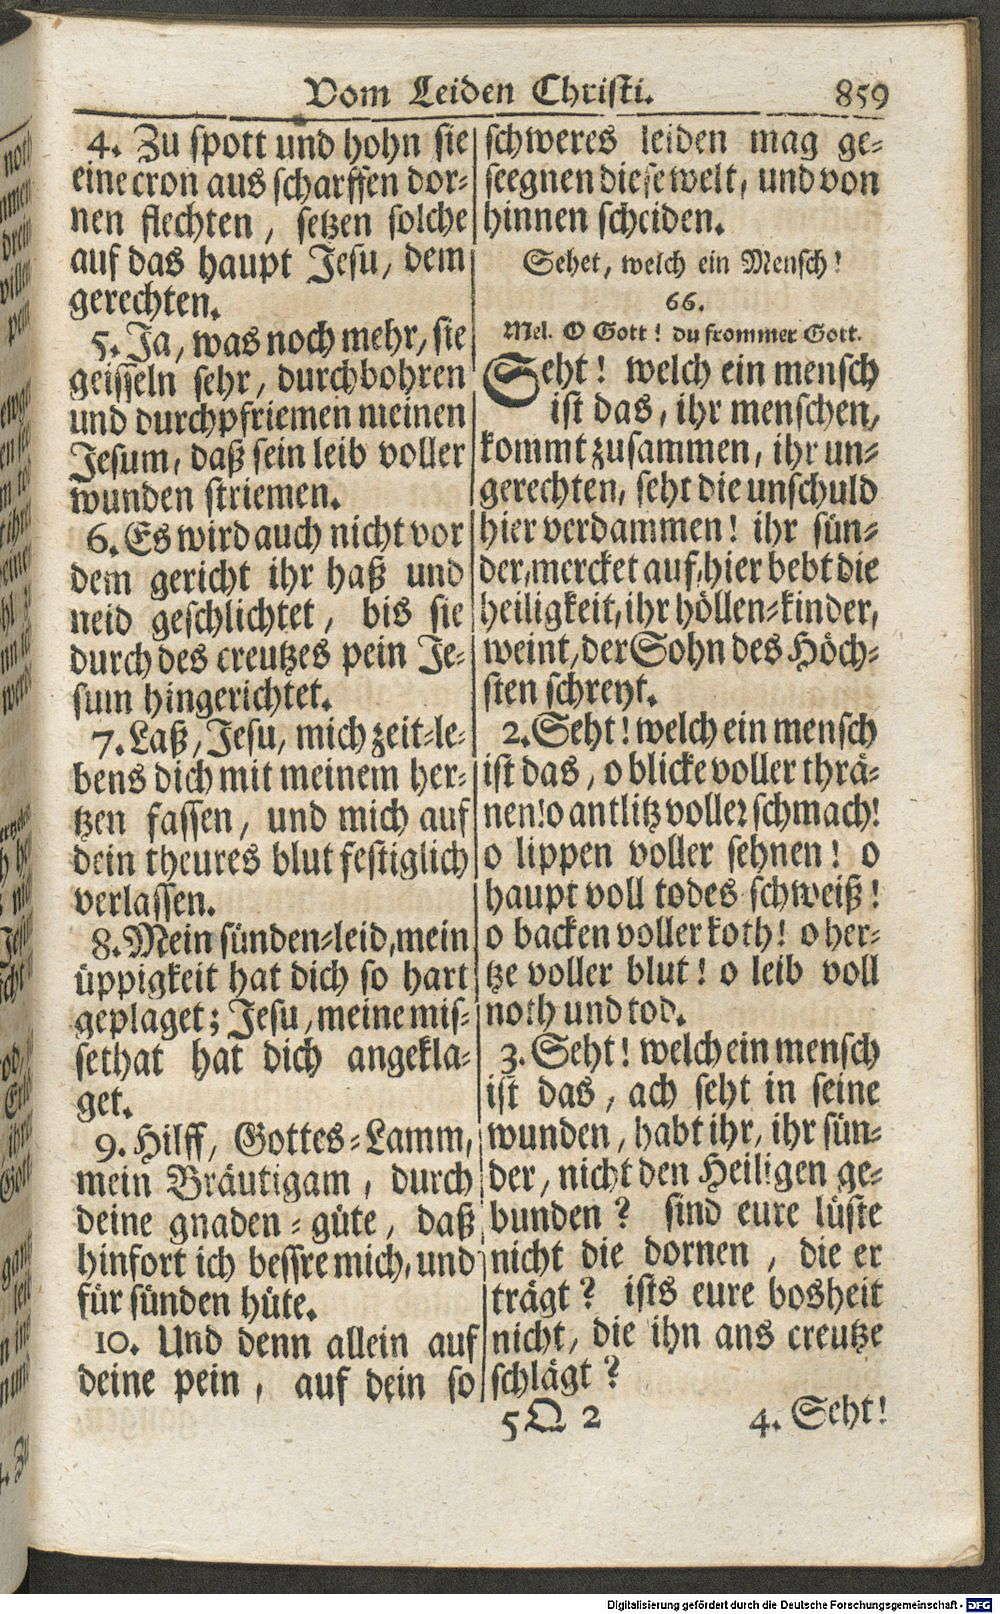 Vom Leiden Christi. 859
4. Zu spott und hohn sie
eine cron aus scharffen dor-
nen flechten, setzen solche
auf das haupt Jesu, dem
gerechten.
5. Ja, was noch mehr, sie
geisseln sehr, durchbohren
und durchpfriemen meinen
Jesum, daß sein leib voller
wunden striemen.
6. Es wird auch nicht vor
dem gericht ihr haß und
neid geschlichtet, bis sie
durch des creutzes pein Je-
sum hingerichtet.
7. Laß, Jesu, mich zeit-le-
bens dich mit meinem her-
tzen fassen, und mich auf
dein theures blut festiglich
verlassen.
8. Mein sünden-leid, mein
üppigkeit hat dich so hart
geplaget; Jesu, meine mis-
sethat hat dich angekla-
get.
9. Hilff, Gottes-Lamm,
mein Bräutigam, durch
deine gnaden-güte, daß
hinfort ich bessre mich, und
für sünden hüte.
10. Und denn allein auf
deine pein, auf dein so
schweres leiden mag ge-
seegnen diese welt, und von
hinnen scheiden.
Sehet, welch ein Mensch!
66.
Mel. O Gott! du frommer Gott.
Seht! welch ein mensch
ist das, ihr menschen,
kommt zusammen, ihr un-
gerechten, seht die unschuld
hier verdammen! ihr sün-
der, mercket auf, hier bebt die
heiligkeit, ihr höllen-kinder,
weint, der Sohn des Höch-
sten schreyt.
2. Seht! welch ein mensch
ist das, o blicke voller thrä-
nen! o antlitz voller schmach!
o lippen voller sehnen! o
haupt voll todes schweiß!
o backen voller koth! o her-
tze voller blut! o leib voll
noth und tod.
3. Seht! welch ein mensch
ist das, ach seht in seine
wunden, habt ihr, ihr sün-
der, nicht den Heiligen ge-
bunden? sind eure lüste
nicht die dornen, die er
trägt? ists eure bosheit
nicht, die ihn ans creutze
schlägt?
5 Q 2 4. Seht!
Digitalisierung gefördert durch die Deutsche Forschungsgemeinschaft - DFG